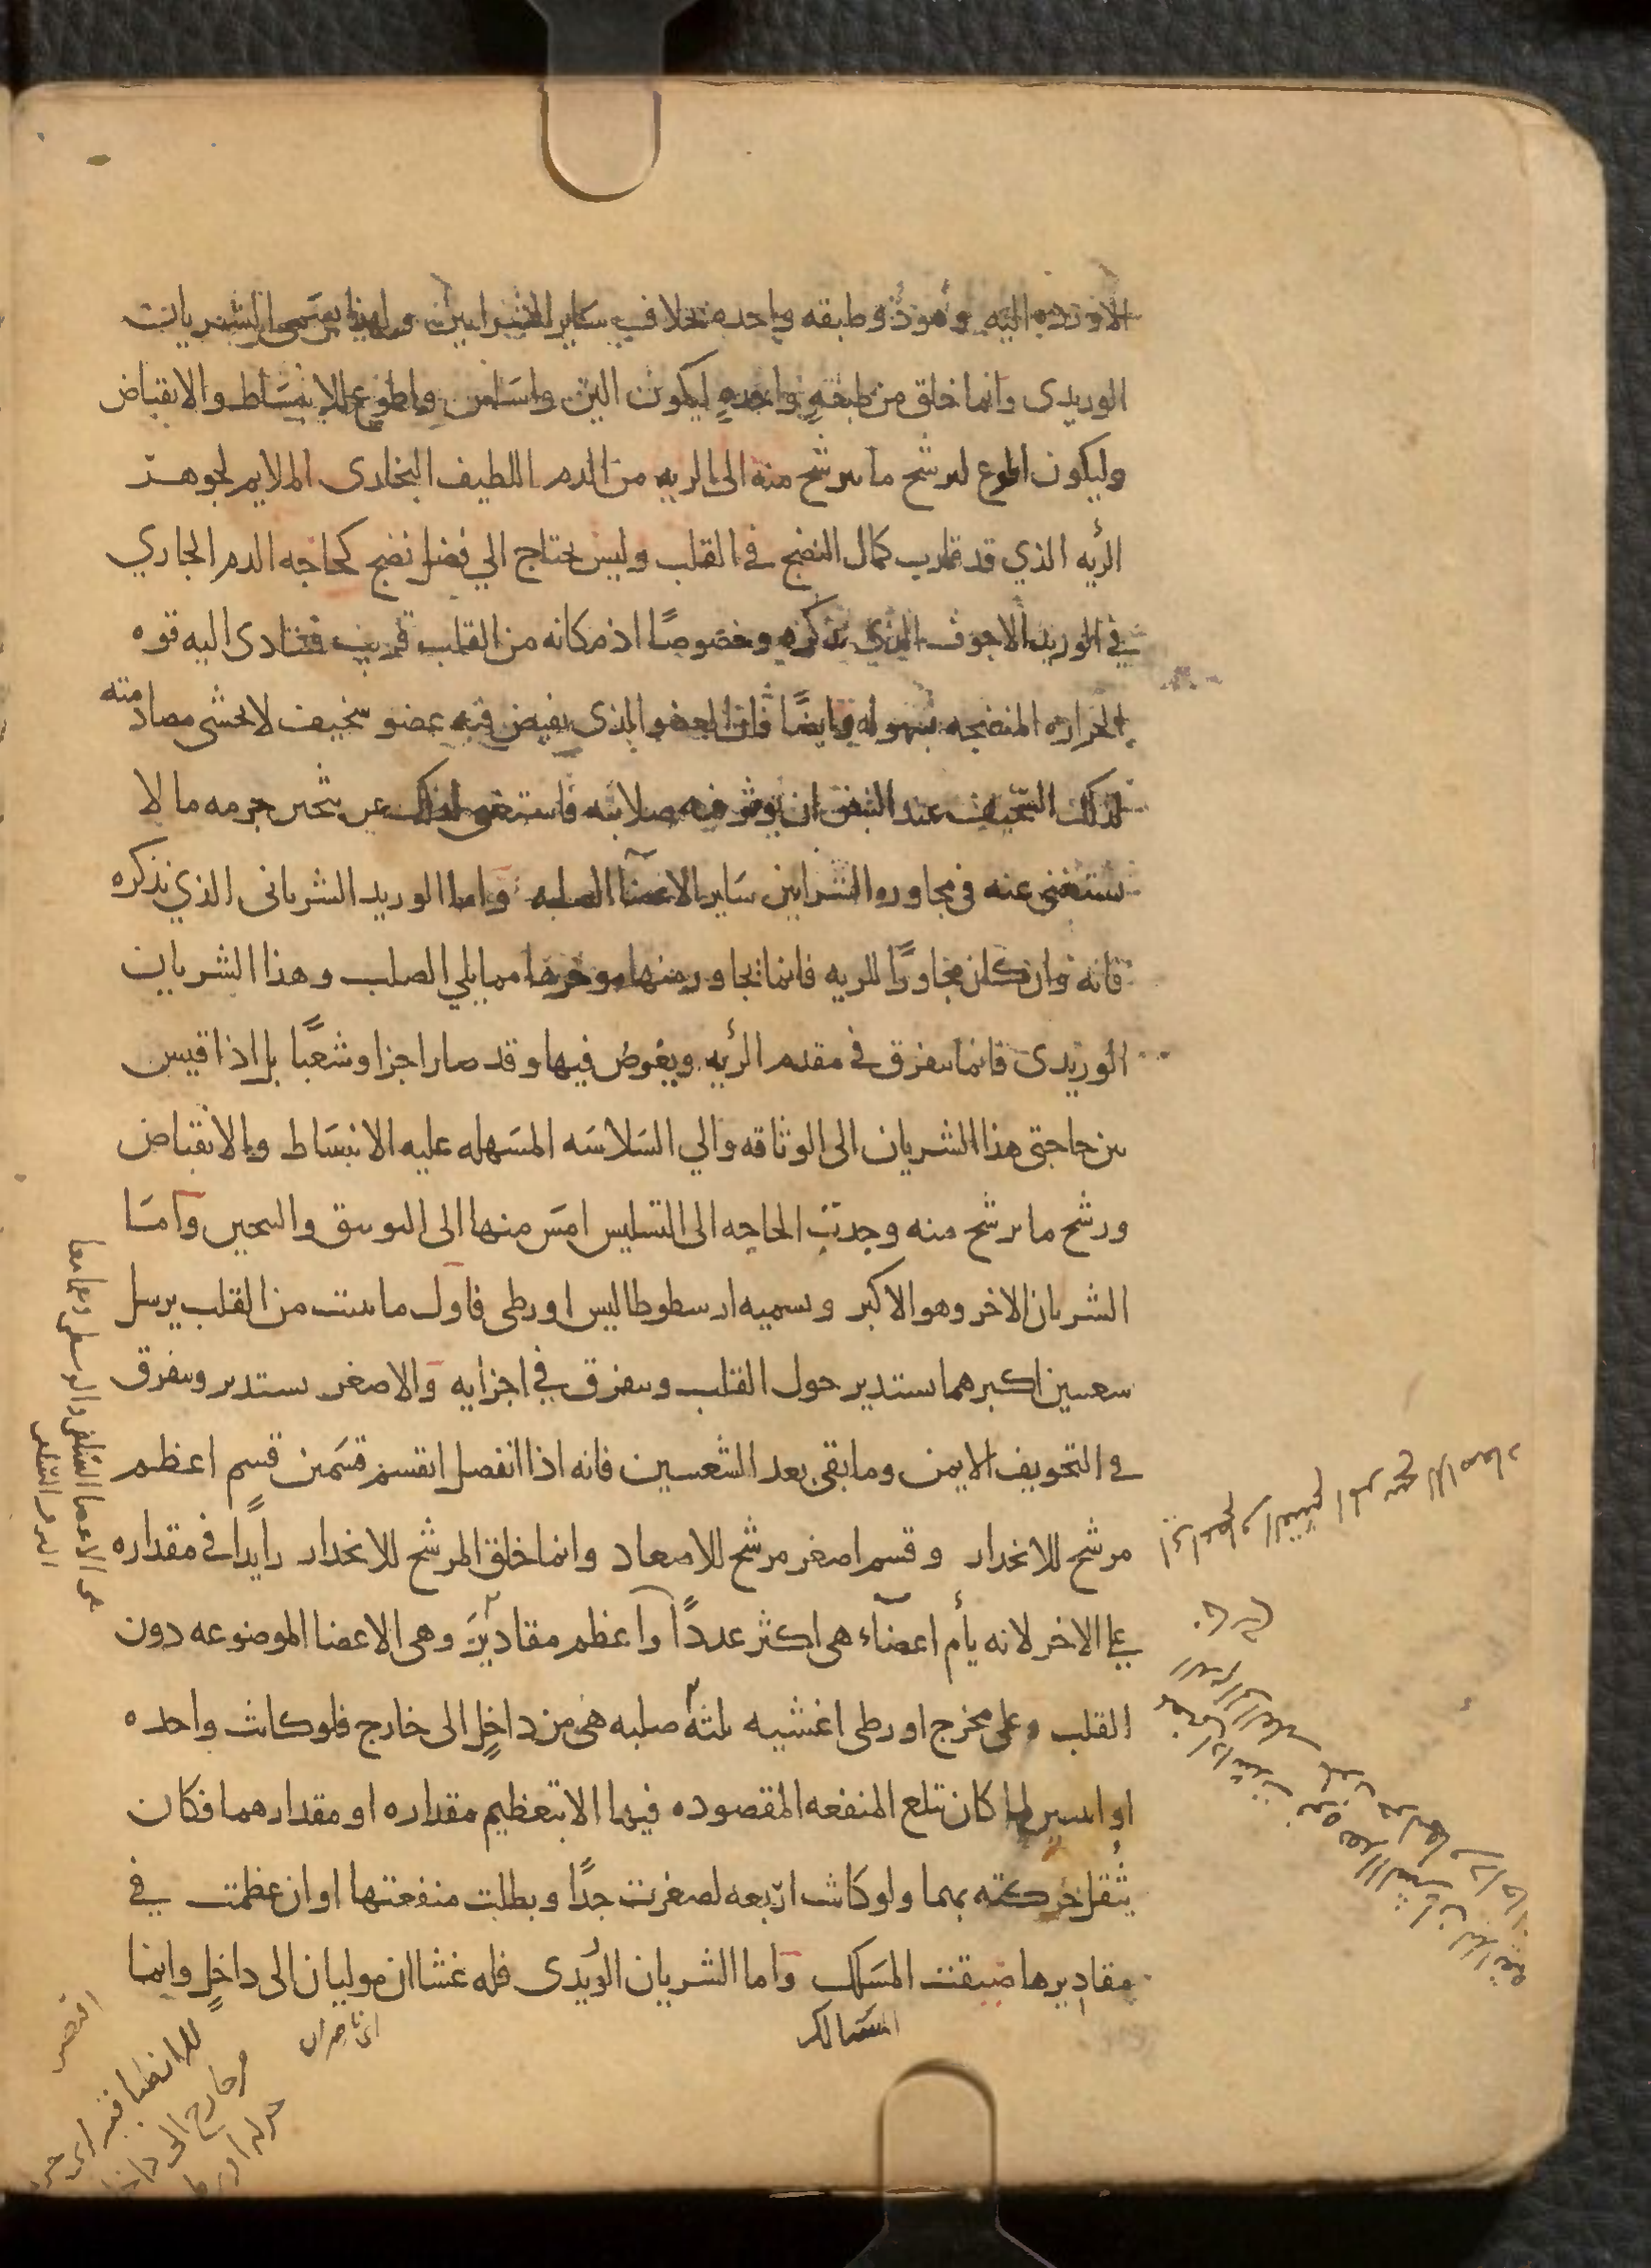 الاورده اليه وهو ذو طبقه واحده بخلاف ساير الشرايين ولهذا يسمى الشريان
الوريدى وانما خلق من طبقةٍ واحدهٍ ليكون الين واسلس واطوع للانبساط والانقباض
وليكون اطوع لترشح ما يترشح منه الى الريه من الدم اللطيف البخارى الملايم لجوهر
الرئه الذي قد قارب كمال النضج في القلب وليس يحتاج الي فضل نضج كحاجه الدم الجاري
في الوريد الاجوف الذي نذكره وخصوصًا اذ مكانه من القلب قريب فتتادى اليه قوه
الحراره المنضجه بسهوله وايضًا فان العضو الذى ينبض فيه عضو سخيف لا يخشى مصادمته
لذلك السخيف عند النبض ان توثر فيه صلابته فاستغنى لذلك عن تثخين جرمه ما لا
يستغنى عنه في مجاوره الشرايين ساير الاعضآ الصلبه واما الوريد الشريانى الذي نذكره
فانه وان كان مجاورًا للريه فانما تجاور منها موخرها مما يلي الصلب وهذا الشريان
الوريدى فانما يتفرق في مقدم الرئه ويغوص فيها وقد صار اجزا وشعبًا بل اذا قيس
بين حاجتى هذا الشريان الى الوثاقه والي السلاسه المسهله عليه الانبساط والانقباض
ورشح ما يرشح منه وجدت الحاجه الى التسليس امسّ منها الى التوثيق والتثخين وآمّا
الشريان الاخر وهو الاكبر ويسميه ارسطوطاليس اورطى فاول ما ينبت من القلب يرسل
شعبتين اكبرهما يستدير حول القلب ويتفرق في اجزايه والاصغر يستدير ويتفرق
في التجويف الايمن وما يبقى بعد الشعبتين فانه اذا انفصل انقسم قسمين قسم اعظم
مرشح للانحدار وقسم اصغر مرشح للاصعاد وانما خلق المرشح للانحدار زايدًا في مقداره
على الاخر لانه يأم اعضآء هى اكثر عددًا وآعظم مقادير وهى الاعضا الموضوعه دون
القلب وعلى مخرج اورطى اغشيه ثلثه صلبه هى من داخلٍ الى خارج فلو كانت واحده
او اثنين لما كان تبلع المنفعه المقصوده فيها الا بتعظيم مقداره او مقدارهما فكان
يثقل حركته بهما ولو كانت اربعه لصغرت جدًا وبطلت منفعتها او ان عظمت في
مقاديرها ضيقت المسلك واما الشريان الوريدى فله غشاان موليان الى داخلٍ وانما
المسالك
اى ناظران
اقتصر